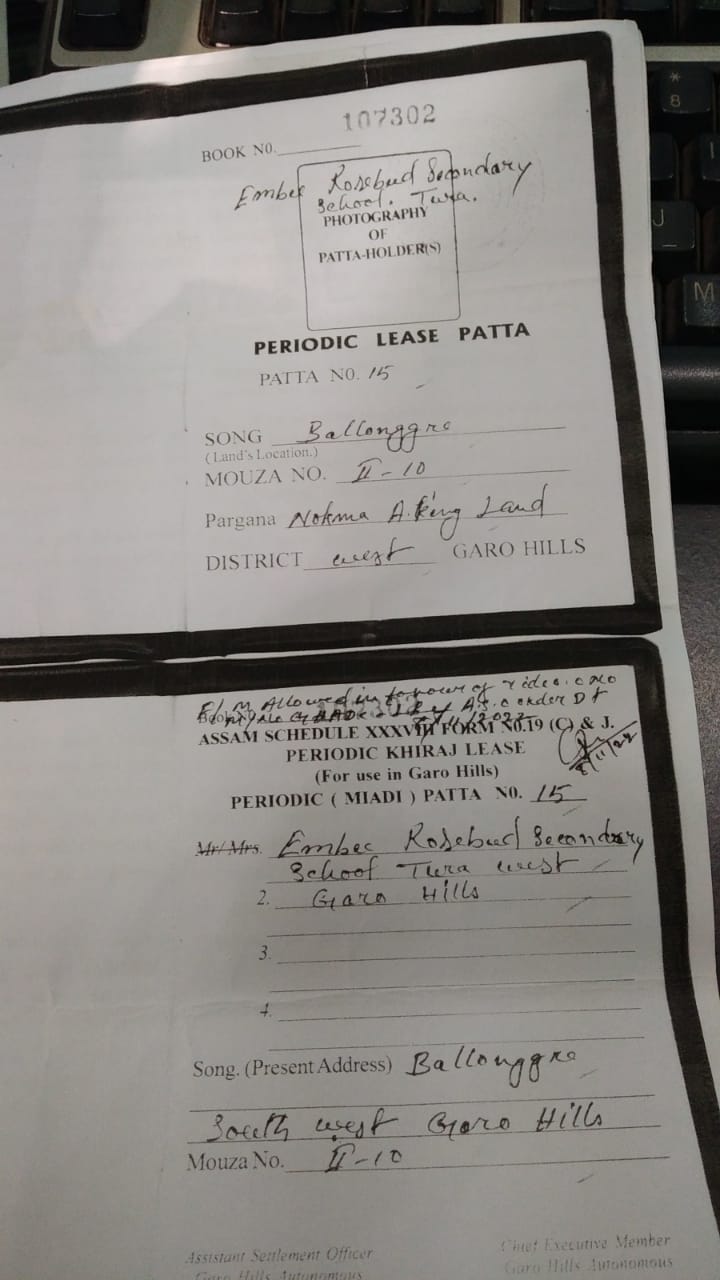 107302
BOOK NO.
Embee Rosebud Secondary
School. Tura.
PHOTOGRAPHY
OF
PATTA-HOLDER(S)
PERIODIC LEASE PATTA
PATTA NO. 15
SONG Ballonggre
(Land's Location.)
MOUZA NO. II-10
Pargana Nokma A.King Land
DISTRICT west GARO HILLS
Allowed in favour of
order Dt
ASSAM SCHEDULE XXXVIII FORM NO.19 (C) & J.
PERIODIC KHIRAJ LEASE
8/11/22
(For use in Garo Hills)
PERIODIC ( MIADI ) PATTA NO. 15
Mr/Mrs. Embee Rosebud Secondary
School Tura west
2. Garo Hills
3.
4.
Song. (Present Address) Ballonggre
South west Garo Hills
Mouza No. II-10
Assistant Settlement Officer Chief Executive Member
Garo Hills Autonomous Garo Hills Autonomous